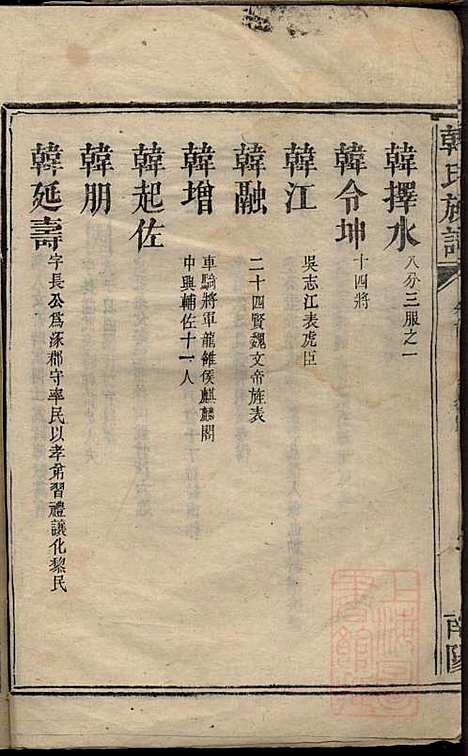 韓氏族譜
南陽
韓擇水
八分三服之一
韓令坤
十四將
韓江
吳志江表虎臣
韓融
二十四賢魏文帝旌表
韓增
車騎將軍龍雒侯麒麟閣
中興輔佐十一人
韓起佐
韓朋
韓延壽
字長公為涿郡守率民以孝弟習禮讓化黎民